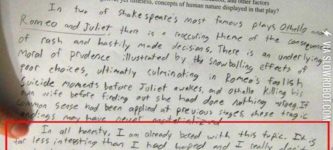 ness, concepts of human nature displayed in that play?
In two of Shakespeare's most famous plays Othello and
Romeo and Juliet there is a reoccuring theme of the consequences
of rash and hastily made decisions. There is an underlying
moral of prudence illustrated by the snowballing effects of
poor choices, ultimately culminating in Romeo's foolish
suicide moments before Juliet awakes, and Othello killing his
own wife before finding out she had done nothing wrong. If
common sense had been applied at previous stages these tragic
endings may have never
In all honesty, I am already bored with this topic. It is
far less interesting than I had hoped and I really
VIASLOWROBOT.COM